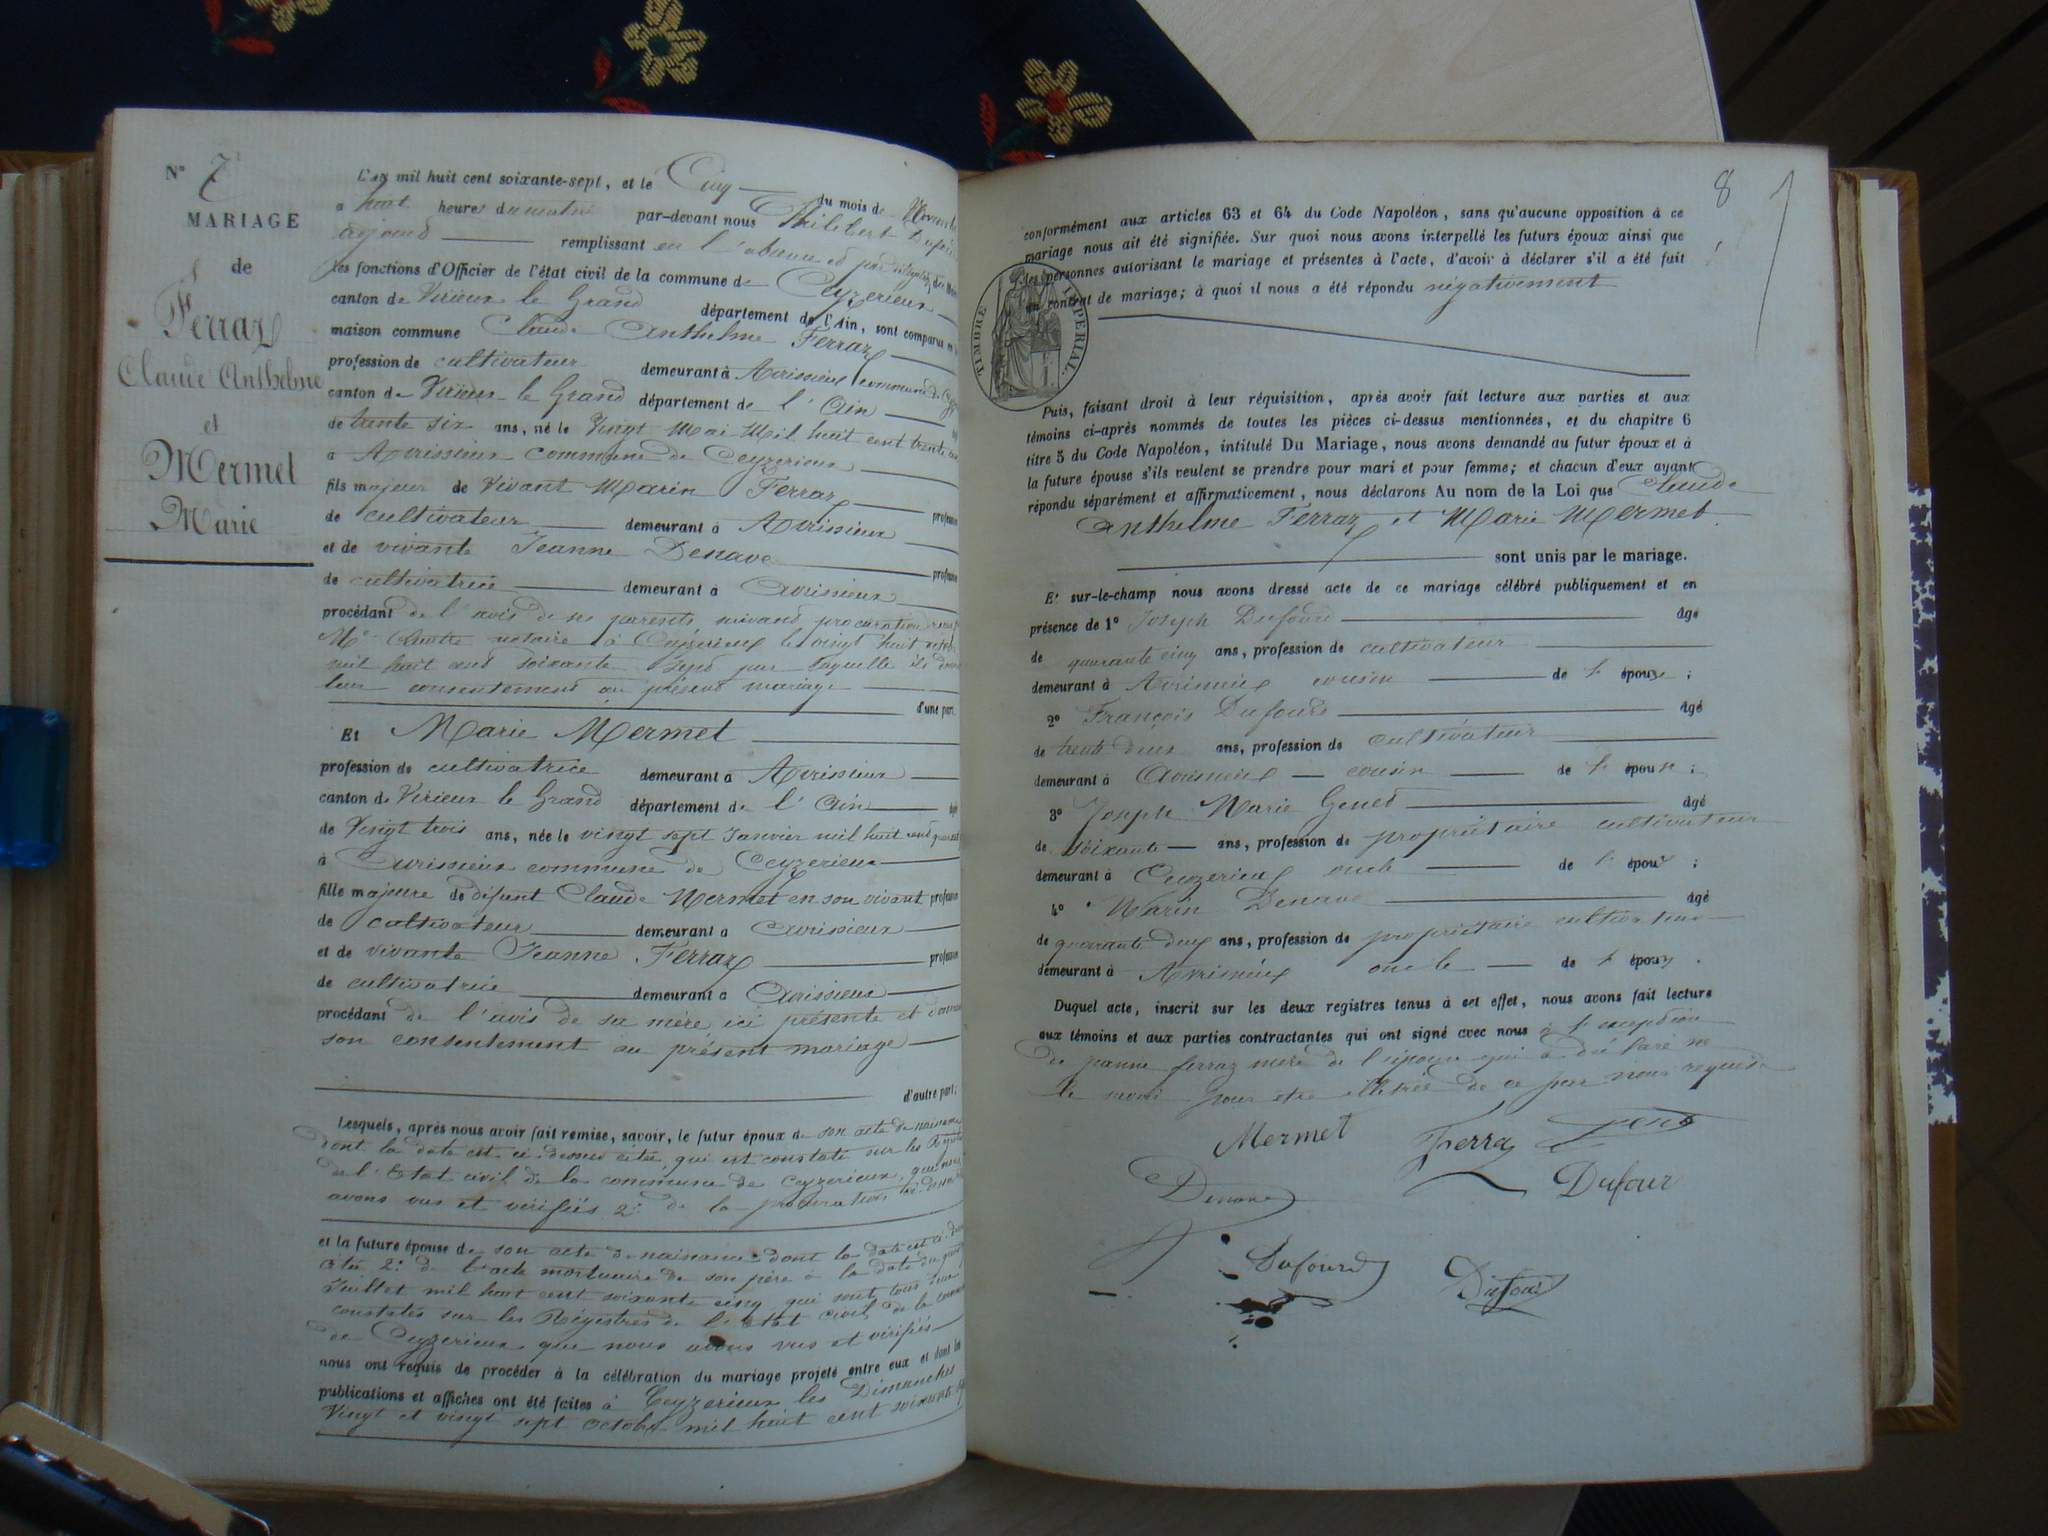 N° 7
MARIAGE
de
Ferraz
Claude Anthelme
et
Mermet
Marie
L'an mil huit cent soixante-sept, et le Cinq du mois de Novembre
à huit heures du matin par-devant nous Philibert
adjoint remplissant en l'absence et par
les fonctions d'Officier de l'état civil de la commune de Ceyzerieux
canton de Virieux le Grand département de l'Ain, sont comparus en la
maison commune Claude Anthelme Ferraz
profession de cultivateur demeurant à Avrissieux commune de
canton de Virieux le Grand département de l'Ain
de trente six ans, né le Vingt Mai Mil huit cent trente
à Avrissieux commune de Ceyzerieux
fils majeur de Vivant Marin Ferraz
de cultivateur demeurant à Avrissieux profession
et de vivante Jeanne Denave
de cultivatrice demeurant à Avrissieux profession
procédant de l'avis de ses parents suivant procuration
Me notaire à Ceyzerieux le vingt huit
mil huit cent soixante sept par laquelle ils
leur consentement au présent mariage
d'une part.
Et Marie Mermet
profession de cultivatrice demeurant à Avrissieux
canton de Virieux le Grand département de l'Ain
de Vingt trois ans, née le vingt sept Janvier mil huit cent
à Avrissieux commune de Ceyzerieux
fille majeure de défunt Claude Mermet en son vivant profession
de cultivateur demeurant à Avrissieux
et de vivante Jeanne Ferraz profession
de cultivatrice demeurant à Avrissieux
procédant de l'avis de sa mère ici présente et
son consentement au présent mariage
d'autre part;
Lesquels, après nous avoir fait remise, savoir, le futur époux de son acte de naissance
dont la date est ci-dessus citée, qui est constaté sur les
de l'Etat civil de la commune de Ceyzerieux, que nous
avons vus et vérifiés 2° de la procuration ci-dessus
et la future épouse de son acte de naissance dont la date est
citée 2° de l'acte mortuaire de son père à la date du
Juillet mil huit cent soixante cinq qui sont tous
constatés sur les Régistres de l'Etat civil de la commune
de Ceyzerieux que nous avons vus et vérifiés
nous ont requis de procéder à la célébration du mariage projeté entre eux et dont les
publications et affiches ont été faites à Ceyzerieux les Dimanches
Vingt et vingt sept octobre mil huit cent soixante
8
conformément aux articles 63 et 64 du Code Napoléon, sans qu'aucune opposition à ce
mariage nous ait été signifiée. Sur quoi nous avons interpellé les futurs époux ainsi que
les personnes autorisant le mariage et présentes à l'acte, d'avoir à déclarer s'il a été fait
un contrat de mariage; à quoi il nous a été répondu négativement
TIMBRE IMPERIAL.
Puis, faisant droit à leur réquisition, après avoir fait lecture aux parties et aux
témoins ci-après nommés de toutes les pièces ci-dessus mentionnées, et du chapitre 6
titre 5 du Code Napoléon, intitulé Du Mariage, nous avons demandé au futur époux et à
la future épouse s'ils veulent se prendre pour mari et pour femme; et chacun d'eux ayant
répondu séparément et affirmativement, nous déclarons Au nom de la Loi que Claude
Anthelme Ferraz et Marie Mermet
sont unis par le mariage.
Et sur-le-champ nous avons dressé acte de ce mariage célébré publiquement et en
présence de 1° Joseph Dufourd âgé
de quarante cinq ans, profession de cultivateur
demeurant à Avrissieux cousin de l'épouse;
2° François Dufourd âgé
de trente deux ans, profession de cultivateur
demeurant à Avrissieux cousin de l'épouse;
3° Joseph Marie Genet âgé
de soixante ans, profession de propriétaire cultivateur
demeurant à Ceyzerieux oncle de l'époux;
4° Marin Denave âgé
de quarante deux ans, profession de propriétaire cultivateur
demeurant à Avrissieux oncle de l'époux.
Duquel acte, inscrit sur les deux registres tenus à cet effet, nous avons fait lecture
aux témoins et aux parties contractantes qui ont signé avec nous à l'exception
de jeanne ferraz mère de l'épouse qui a déclaré ne
le savoir pour être illétrée de ce par nous requise
Mermet Ferraz
Denave Dufour
Dufourd Dufour